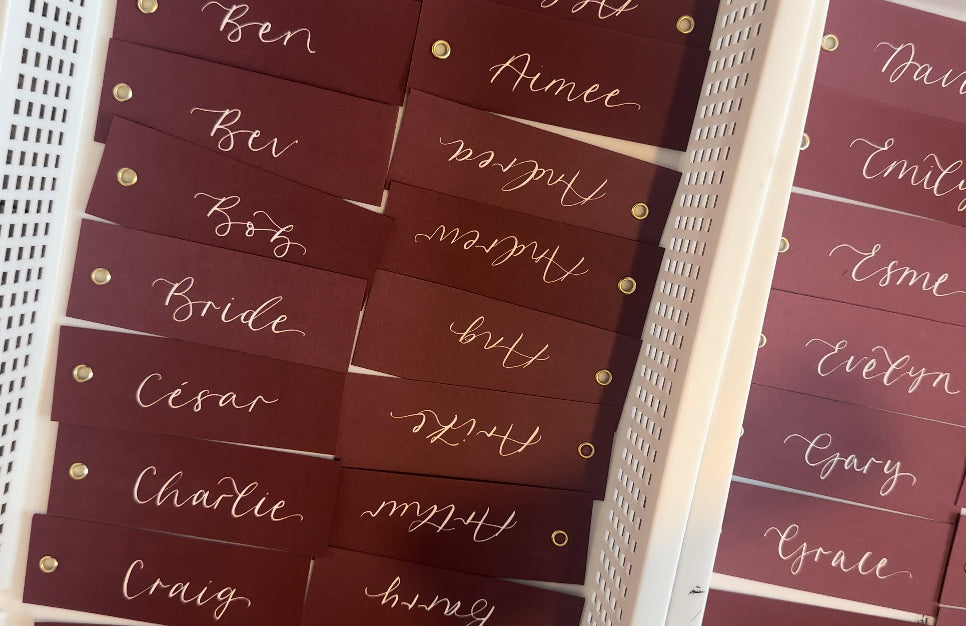 Ben
Bev
Bob
Bride
César
Charlie
Craig
Aimee
Andrea
Andrew
Ang
Arike
Arthur
Barry
Emily
Esme
Evelyn
Gary
Grace